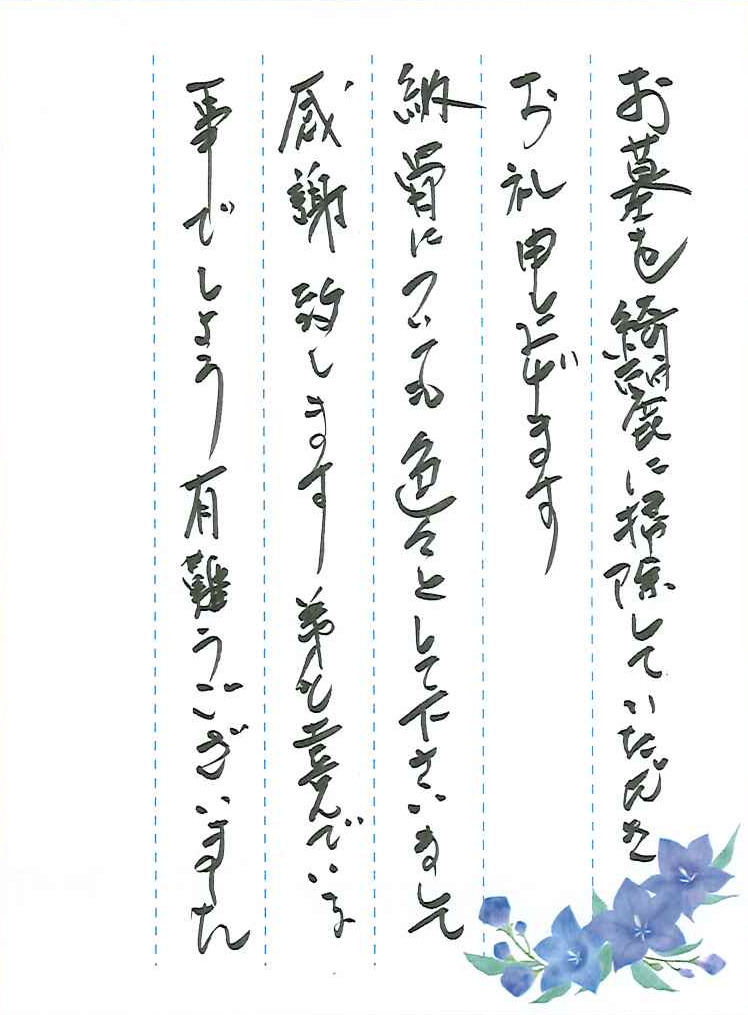 お墓を綺麗に掃除していただき
お礼申し上げます
納骨についても色々として下さいまして
感謝致します 弟も喜んでいる
事でしょう 有難うございました